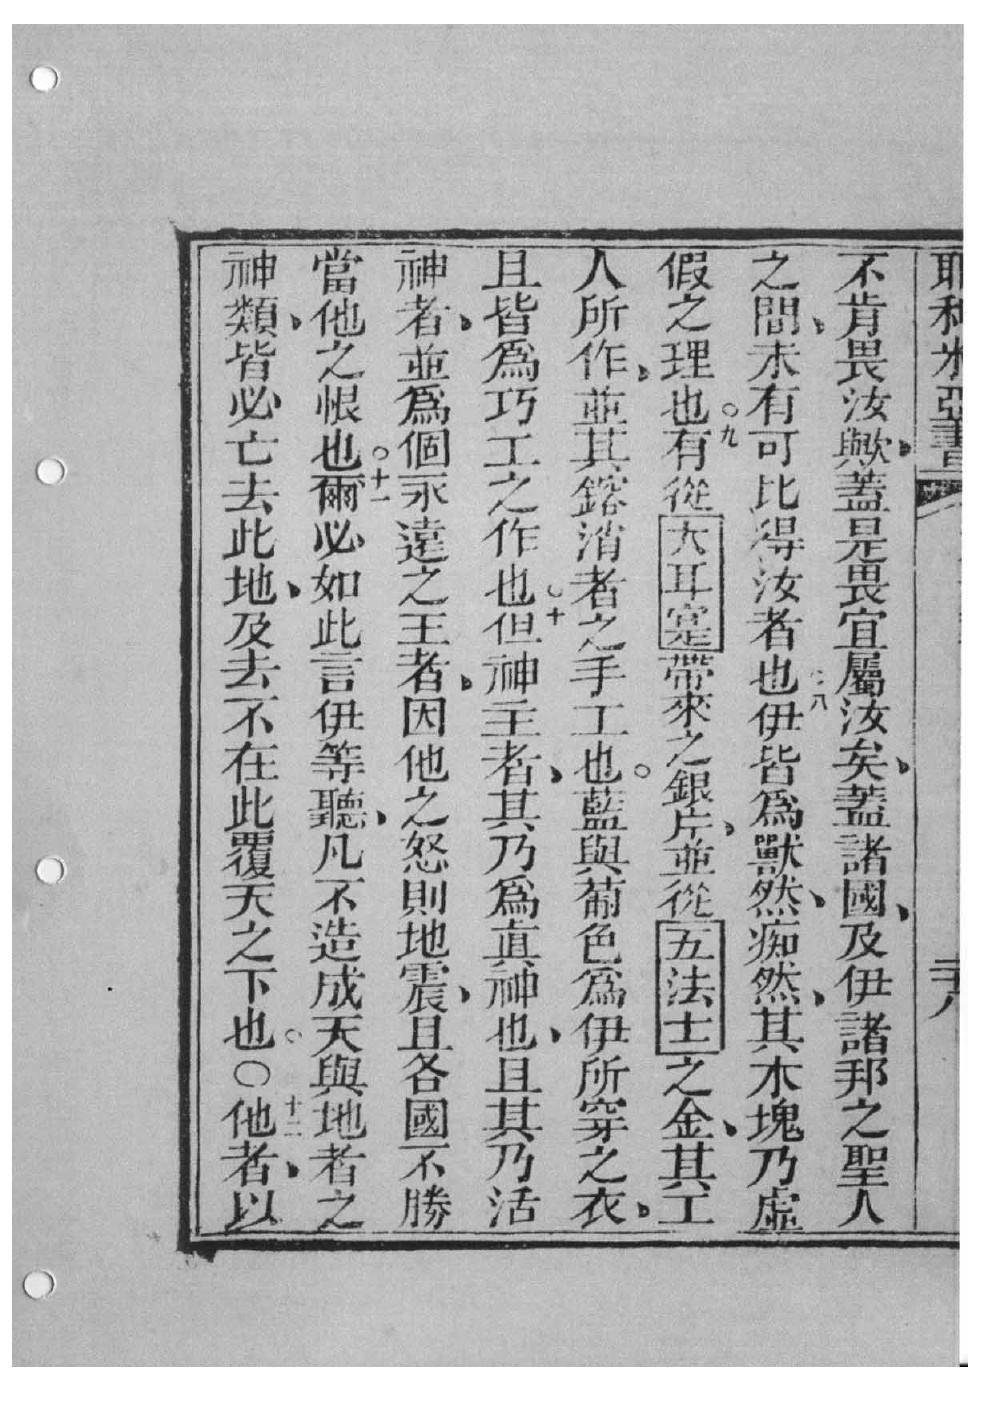 耶利米亞書
二十八
不肯畏汝歟、蓋是畏宜屬汝矣、蓋諸國、及伊諸邦之聖人
之間、未有可比得汝者也○八伊皆爲獸然、痴然、其木塊乃虛
假之理也○九有從大耳寔帶來之銀片、並從五法士之金、其工
人所作、並其鎔消者之手工也○藍與葡色爲伊所穿之衣、
且皆爲巧工之作也○十但神主者、其乃爲眞神也、且其乃活
神者、並爲個永遠之王者、因他之怒則地震、且各國不勝
當他之恨也○十一爾必如此言伊等聽、凡不造成天與地者之
神類、皆必亡去此地、及去不在此覆天之下也○○十二他者、以